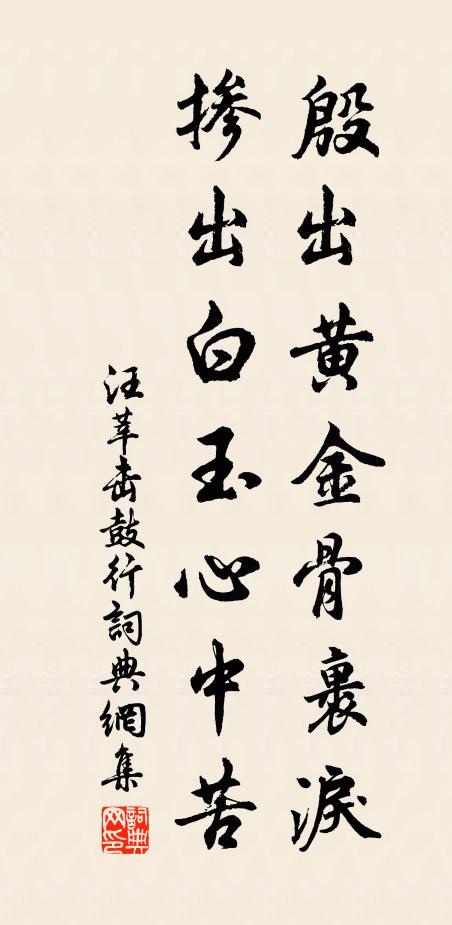 殷出黄金骨裏淚
摻出白玉心中苦
汪莘击鼓行詞典網集
詞典网印